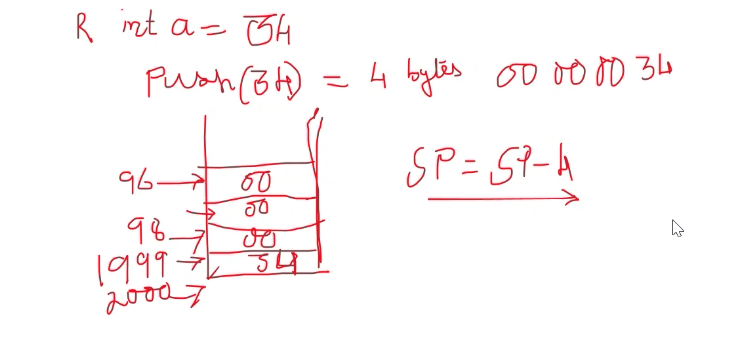 R int a = 34
Push(34) = 4 bytes 00 00 00 34
SP = SP - 4
96 → 00
→ 00
98 → 00
1999 → 34
2000 →